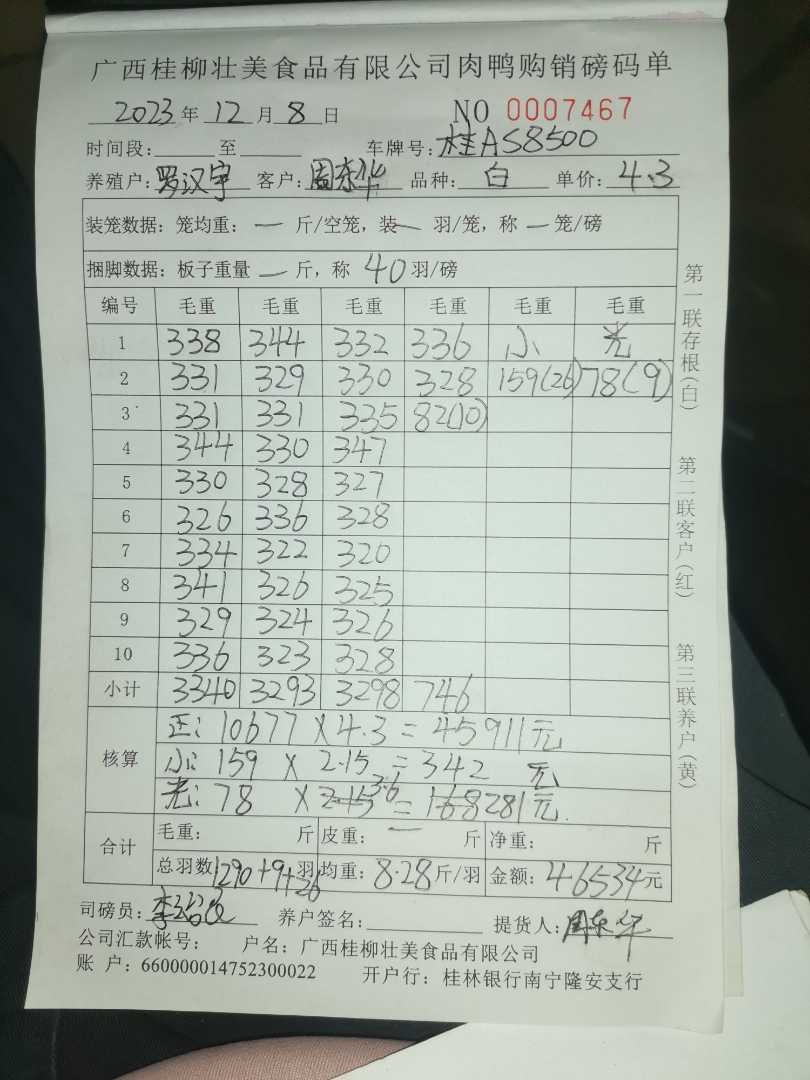 广西桂柳壮美食品有限公司肉鸭购销磅码单
2023年12月8日 NO 0007467
时间段: 至 车牌号:桂AS8500
养殖户:罗汉宇 客户:周东华 品种:白 单价:4.3
装笼数据:笼均重:一斤/空笼,装一羽/笼,称一笼/磅
捆脚数据:板子重量一斤,称40羽/磅
编号 毛重 毛重 毛重 毛重 毛重 毛重
1 338 344 332 336 小 光
2 331 329 330 328 159(26) 78(9)
3 331 331 335 82(10)
4 344 330 347
5 330 328 327
6 326 336 328
7 334 322 320
8 341 326 325
9 329 324 326
10 336 323 328
小计 3340 3293 3298 746
核算 正:10677×4.3=45911元
小:159×2.15=342元
光:78×2.15 3.6=168 281元
合计 毛重: 斤 皮重:一斤 净重: 斤
总羽数1290+9+26羽 均重:8.28斤/羽 金额:46534元
司磅员:李 养户签名: 提货人:周东华
公司汇款帐号: 户名:广西桂柳壮美食品有限公司
账 户:660000014752300022 开户行:桂林银行南宁隆安支行
第一联存根(白)
第二联客户(红)
第三联养户(黄)